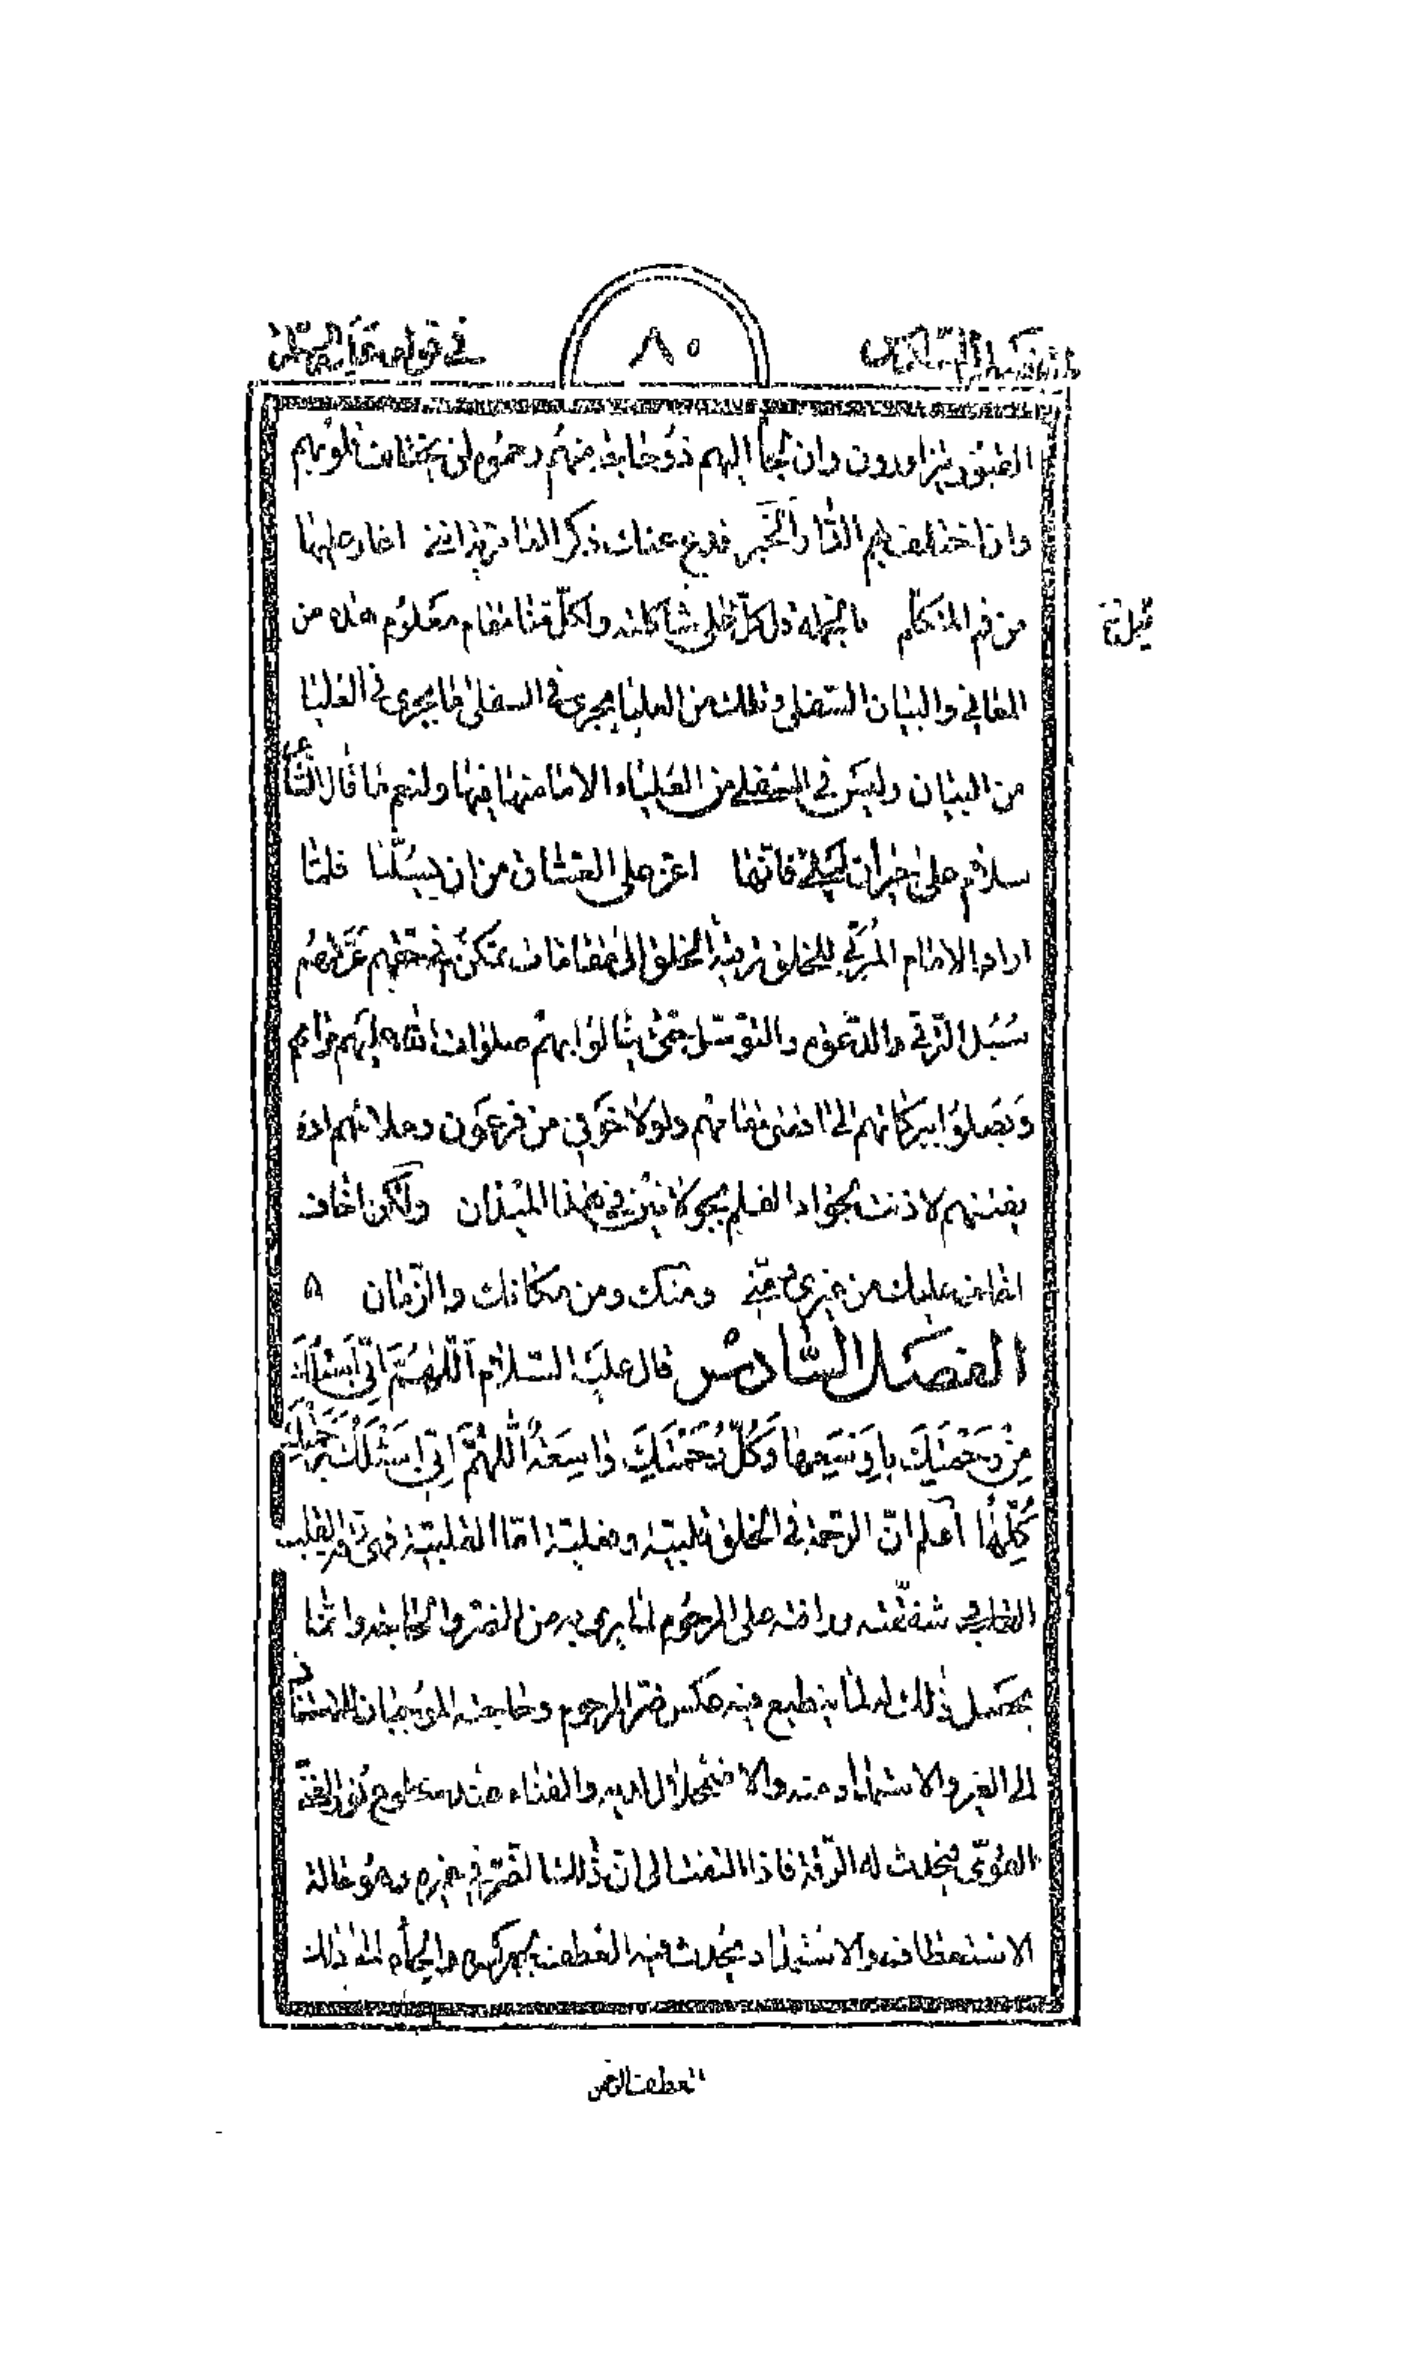 الفصل السادس
٨٠
في قوله
القبور يتزاورون وان لجأ اليهم ذو حاجة منهم رحموه لن يختلف قلوبهم
وان اختلف بهم الدار والخبر فدع عنك ذكر العامرية انني اغار عليها
من فم المتكلم فالجملة ذلكل على شاكلته ولكل منا مقام معلوم هذه من
المعاني والبيان السفلى وتلك من العليا يجري في السفلى ما يجري في العليا
من البيان وليس في السفلى من العلياء الا ما منها فيها ولنعم ما قال الشاعر
سلام على جيران ليلى فانها اعز على العشاق من ان يسلما فلما
اراد الامام المربي للخلق تربية الخلق الى مقامات يمكن في حقهم عرفهم
سبل الترقي والدعوة والتوسل حتى ينالوا بهم صلوات الله عليهم مرادهم
ويصلوا ببركاتهم الى ادنى مقاماتهم ولولا خوفي من فرعون وملائهم ان
يفتنهم لاذنت لجواد القلم يجولانين في هذا الميدان ولكن اخاف
اخاف عليك من غيري ومني ومنك ومن مكانك والزمان ۵
الفصل السادس قال عليه السلام اللهم اني اسئلك
من رحمتك باوسعها وكل رحمتك واسعة اللهم اني اسئلك برحمتك
كلها اعلم ان الرحمة في الخلق قلبية وفعلية اما القلبية فهي القلب
شفقته ورافته على المرحوم لما يرى به من الضر والحاجة وانما
يحصل ذلك له لما ينطبع فيه عكس ضر المرحوم وحاجته الموجبان للاستناد
الى الغير والاستمداد منه والاضمحلال لديه والفناء عنده سطوع نور الغير
القوي فيحدث له الرقة فاذا التفت الى ان ذلك الضر في غيره وهو حالة
الاستعطاف والاستمداد يحدث فيه العطف والجأه الى ذلك
العطف